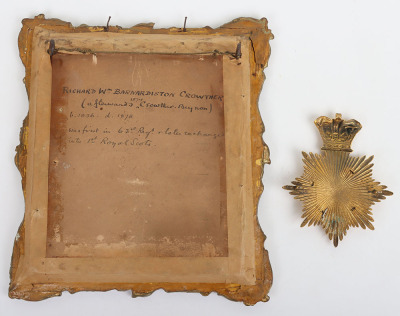 RICHARD Wm BARNARDISTON CROWTHER
(afterwards Crowther-Beynon)
b. 1836 d. 1878
was first in 63rd Regt & later exchanged
into 1st Royal Scots